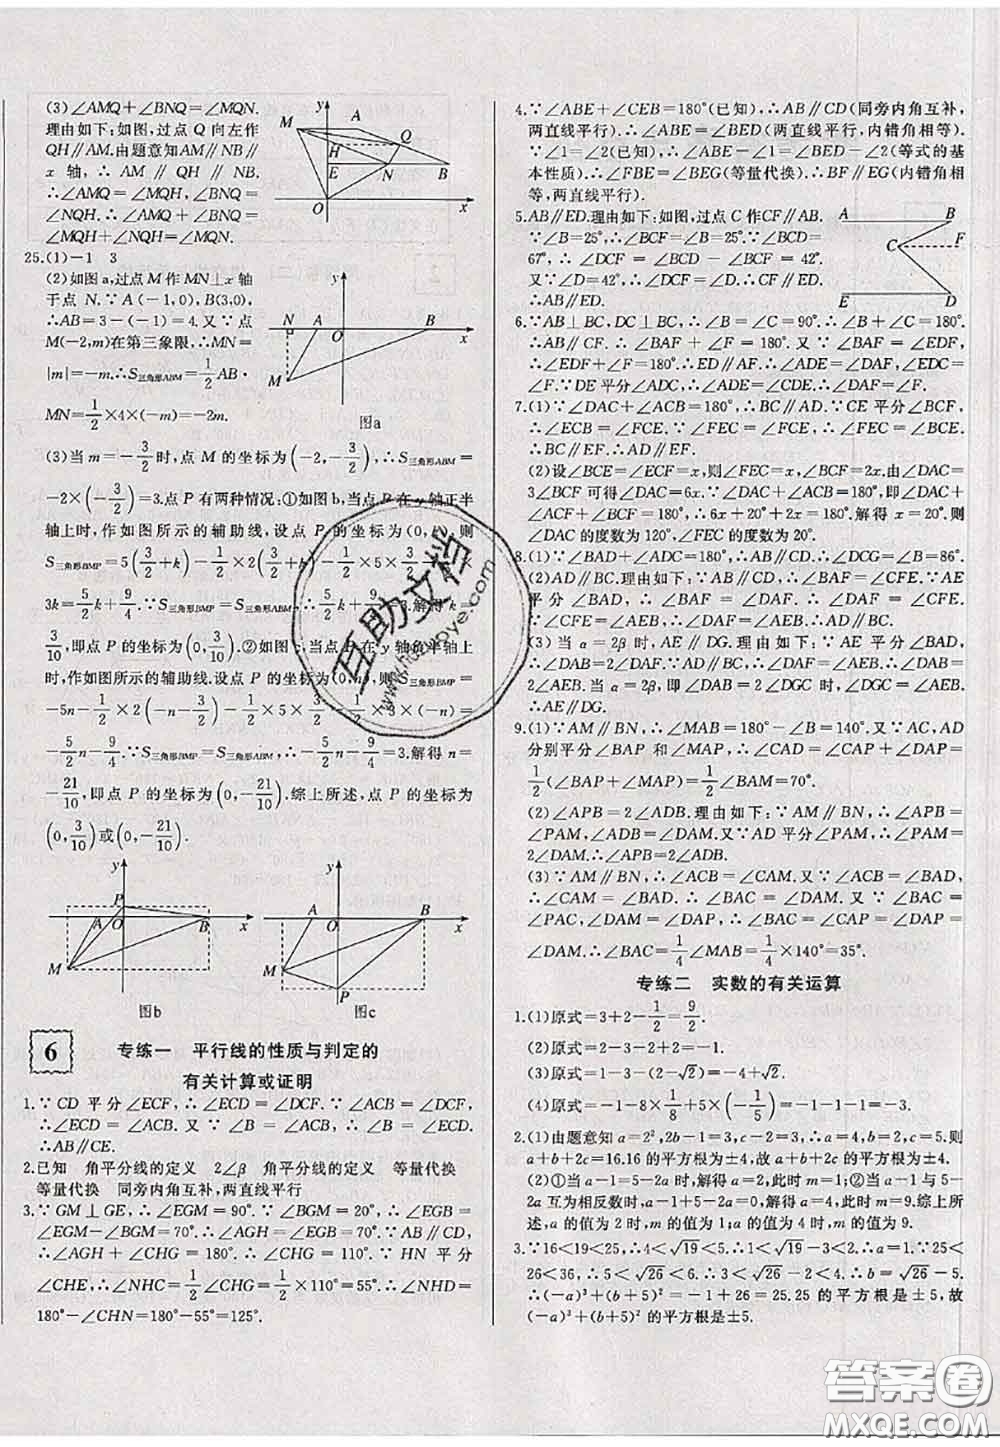 (3)∠AMQ+∠BNQ=∠MQN.
理由如下:如图,过点 Q 向左作
QH∥AM.由题意知AM∥NB∥
x 轴,∴ AM ∥ QH ∥ NB.
∴∠AMQ=∠MQH,∠BNQ=
∠NQH.∴∠AMQ+∠BNQ=
∠MQH+∠NQH=∠MQN.
y
M
A
H
Q
E
N
B
O
x
25.(1)-1 3
(2)如图a,过点 M 作 MN⊥x 轴
于点 N.∵A(-1,0),B(3,0),
∴AB=3-(-1)=4.又∵点
M(-2,m)在第三象限,∴MN=
|m|=-m.∴S三角形ABM=1/2AB·
MN=1/2×4×(-m)=-2m.
y
N A O B x
M
图a
(3)当 m=-3/2时,点 M 的坐标为(-2,-3/2),∴S三角形ABM=
-2×(-3/2)=3.点 P 有两种情况:①如图b,当点 P 在 y 轴正半
轴上时,作如图所示的辅助线,设点 P 的坐标为(0,k),则
S三角形BMP=5(3/2+k)-1/2×2(3/2+k)-1/2×5×3/2-1/2×
3k=5/2k+9/4.∵S三角形BMP=S三角形ABM,∴5/2k+9/4=3.解得 k=
3/10,即点 P 的坐标为(0,3/10).②如图 c,当点 P 在 y 轴负半轴上
时,作如图所示的辅助线.设点 P 的坐标为(0,n),则S三角形BMP=
-5n-1/2×2(-n-3/2)-1/2×5×3/2-1/2×3×(-n)=
-5/2n-9/4.∵S三角形BMP=S三角形ABM,∴-5/2n-9/4=3.解得 n=
-21/10,即点 P 的坐标为(0,-21/10).综上所述,点 P 的坐标为
(0,3/10)或(0,-21/10).
y
P
A O B x
M
图b
y
A O B x
M
P
图c
6 专练一 平行线的性质与判定的
有关计算或证明
1.∵ CD 平分∠ECF,∴∠ECD=∠DCF.∵∠ACB=∠DCF,
∴∠ECD=∠ACB.又∵∠B=∠ACB,∴∠B=∠ECD.
∴AB∥CE.
2.已知 角平分线的定义 2∠β 角平分线的定义 等量代换
等量代换 同旁内角互补,两直线平行
3.∵GM⊥GE,∴∠EGM=90°.∵∠BGM=20°,∴∠EGB=
∠EGM-∠BGM=70°.∴∠AGH=∠EGB=70°.∵AB∥CD,
∴∠AGH+∠CHG=180°.∴∠CHG=110°.∵ HN 平分
∠CHE,∴∠NHC=1/2∠CHG=1/2×110°=55°.∴∠NHD=
180°-∠CHN=180°-55°=125°.
4.∵∠ABE+∠CEB=180°(已知),∴AB∥CD(同旁内角互补,
两直线平行).∴∠ABE=∠BED(两直线平行,内错角相等).
∵∠1=∠2(已知),∴∠ABE-∠1=∠BED-∠2(等式的基
本性质).∴∠FBE=∠BEG(等量代换).∴BF∥EG(内错角相
等,两直线平行).
5.AB∥ED.理由如下:如图,过点 C作CF∥AB.
∵∠B=25°,∴∠BCF=∠B=25°.∵∠BCD=
67°,∴∠DCF=∠BCD-∠BCF=42°.
又∵∠D=42°,∴∠DCF=∠D.∴CF∥ED.
∴AB∥ED.
A B
C F
E D
6.∵AB⊥BC,DC⊥BC,∴∠B=∠C=90°.∴∠B+∠C=180°.
∴AB∥CF.∴∠BAF+∠F=180°.又∵∠BAF=∠EDF,
∴∠EDF+∠F=180°.∴ED∥AF.∴∠ADE=∠DAF,∠EDC=
∠F.∵DE 平分∠ADC,∴∠ADE=∠CDE.∴∠DAF=∠F.
7.(1)∵∠DAC+∠ACB=180°,∴BC∥AD.∵CE 平分∠BCF,
∴∠ECB=∠FCE.∵∠FEC=∠FCE,∴∠FEC=∠BCE.
∴BC∥EF.∴AD∥EF.
(2)设∠BCE=∠ECF=x,则∠FEC=x,∠BCF=2x.由∠DAC=
3∠BCF 可得∠DAC=6x.∵∠DAC+∠ACB=180°,即∠DAC+
∠ACF+∠BCF=180°,∴6x+20°+2x=180°.解得 x=20°.则
∠DAC的度数为120°,∠FEC的度数为20°.
8.(1)∵∠BAD+∠ADC=180°,∴AB∥CD.∴∠DCG=∠B=86°.
(2)AD∥BC.理由如下:∵AB∥CD,∴∠BAF=∠CFE.∵AE
平分∠BAD,∴∠BAF=∠DAF.∴∠DAF=∠CFE.
∵∠CFE=∠AEB,∴∠DAF=∠AEB.∴AD∥BC.
(3)当 α=2β 时,AE∥DG.理由如下:∵ AE 平分∠BAD,
∴∠BAD=2∠DAF=2∠BAF.∵∠DAF=∠AEB,∴∠DAB=
2∠AEB.当 α=2β,即∠DAB=2∠DGC 时,∠AEB=∠DGC.
∴AE∥DG.
9.(1)∵AM∥BN,∴∠MAB=180°-∠B=140°.又∵AC,AD
分别平分∠BAP 和∠MAP,∴∠CAD=∠CAP+∠DAP=
1/2(∠BAP+∠MAP)=1/2∠BAM=70°.
(2)∠APB=2∠ADB.理由如下:∵AM∥BN,∴∠APB=
∠PAM,∠ADB=∠DAM.又∵AD 平分∠PAM,∴∠PAM=
2∠DAM.∴∠APB=2∠ADB.
(3)∵AM∥BN,∴∠ACB=∠CAM.又∵∠ACB=∠BAD,
∴∠CAM=∠BAD.∴∠BAC=∠DAM.又∵∠BAC=
∠PAC,∠DAM=∠DAP,∴∠BAC=∠CAP=∠DAP=
∠DAM.∴∠BAC=1/4∠MAB=1/4×140°=35°.
专练二 实数的有关运算
1.(1)原式=3+2-1/2=9/2.
(2)原式=2-3-2+2=-1.
(3)原式=-2-(2-√2)=-4+√2.
(4)原式=-1-8×1/8+5×(-1/5)=-1-1-1=-3.
2.(1)由题意知 a=2²,2b-1=3,c-2=3,∴a=4,b=2,c=5.则
a+b+2c=16.16的平方根为±4,故 a+b+2c的平方根为±4.
(2)①当 a-1=5-2a 时,解得 a=2,此时 m=1;②当 a-1与5-
2a 互为相反数时,a-1+5-2a=0,解得 a=4,此时 m=9.综上所
述,a 的值为 2 时,m 的值为1;a 的值为 4 时,m 的值为 9.
3.∵16<19<25,∴4<√19<5.∴1<√19-3<2.∴a=1.∵25<
26<36,∴5<√26<6.∴3<√26-2<4.∴b=√26-5.
∴(-a)³+(b+5)²=-1+26=25.25 的平方根是±5,故
(-a)³+(b+5)²的平方根是±5.
互助文档
www.huzhuye.com
答案圈
MXQE.COM